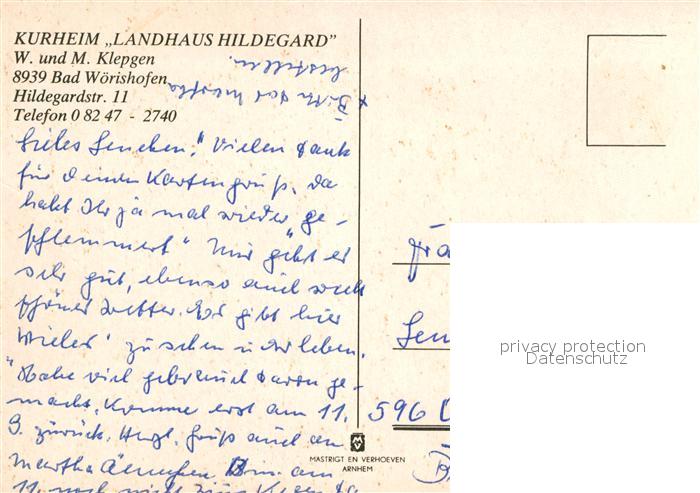 KURHEIM „LANDHAUS HILDEGARD”
W. und M. Klepgen
8939 Bad Wörishofen
Hildegardstr. 11
Telefon 0 82 47 - 2740
bestellen
Liebes Lenchen! Vielen Dank
für Deinen Kartengruß. Da
habt Ihr ja mal wieder "ge-
schlemmert" Mir geht es
sehr gut, ebenso auch
schönes Wetter. Es gibt hier
Vieles zu sehen u. erleben.
Habe viel Gebrauch davon ge-
macht. Komme erst am 11.
9. zurück. Herzl. Gruß auch an
Martha Bin am
11. noch nicht zum
Fra
Len
596
privacy protection
Datenschutz
MASTRIGT EN VERHOEVEN
ARNHEM